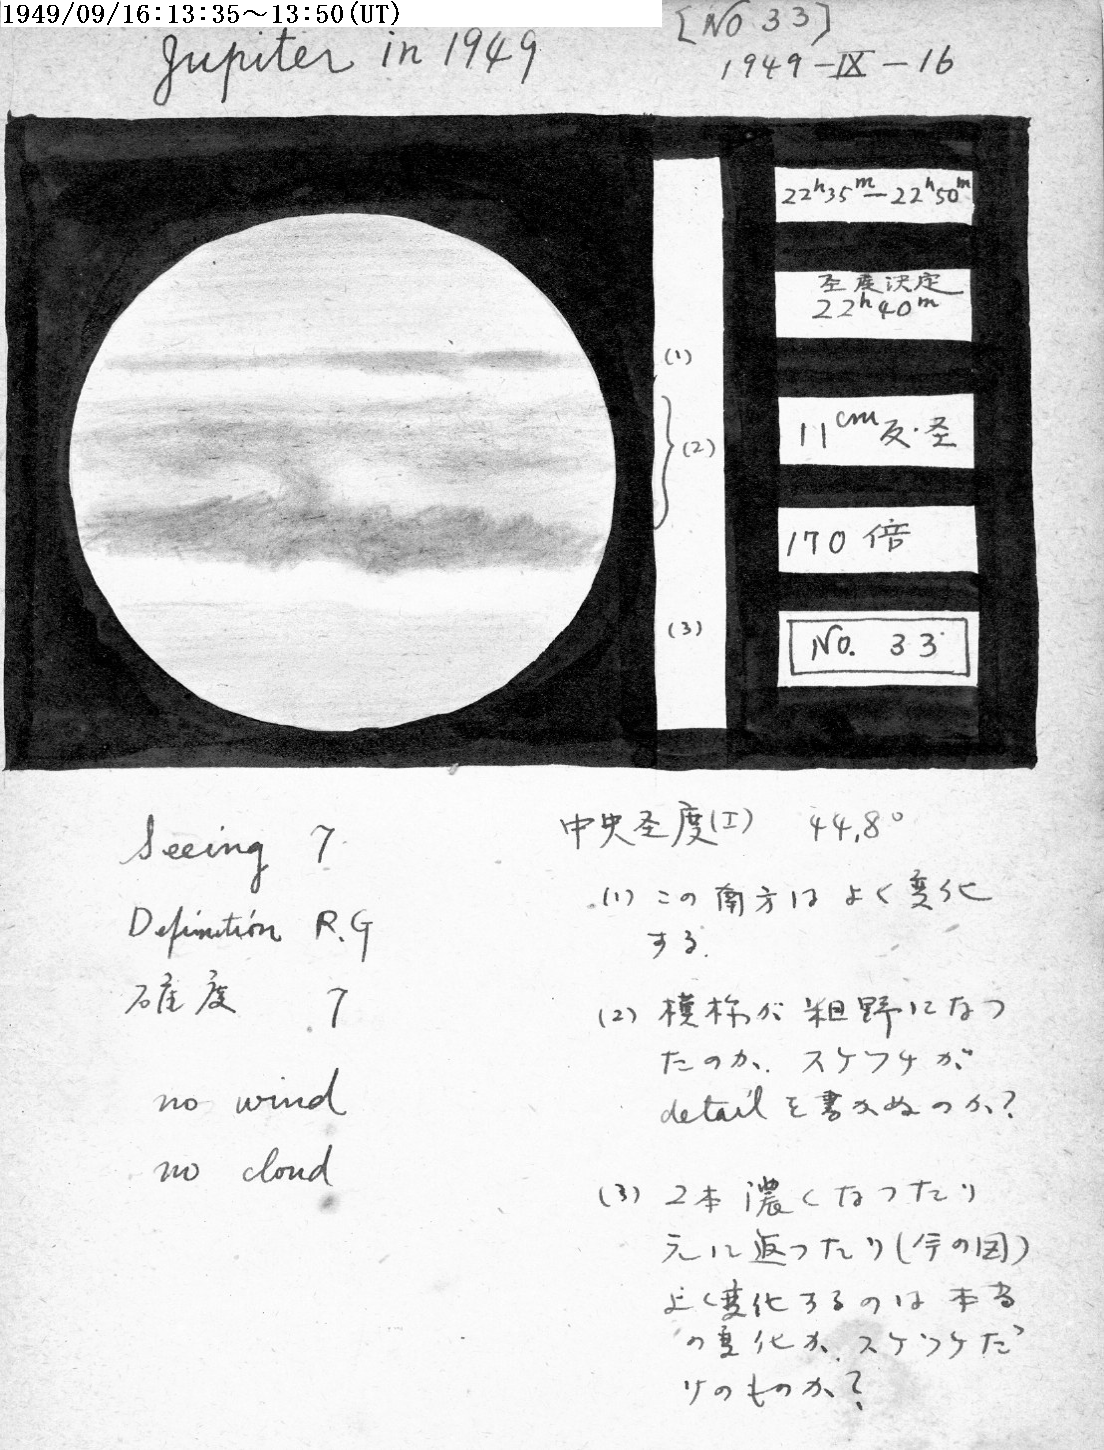 1949/09/16:13:35～13:50(UT)
[No 33]
Jupiter in 1949
1949-IX-16
22h35m-22h50m
圣度決定
22h40m
(1)
11cm反・圣
(2)
170倍
(3)
No. 33
Seeing 7
Definition R.G
確度 7
no wind
no cloud
中央圣度(I) 44.8°
(1) この南方はよく変化
する.
(2) 模様が粗野になつ
たのか. スケツチが
detailを書かぬのか?
(3) 2本濃くなつたり
元に返つたり(今の図)
よく変化するのは本当
の変化か, スケツチだ
けのものか?